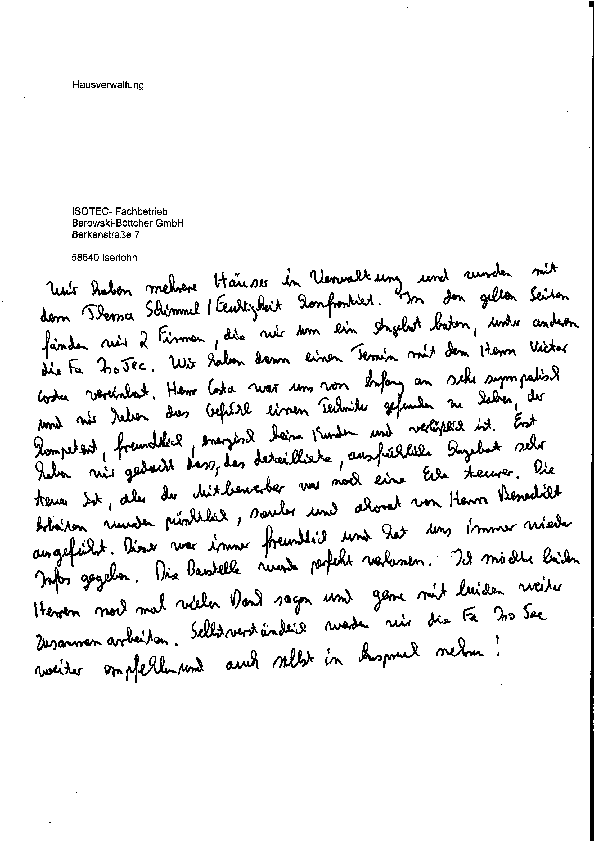 Hausverwaltung
ISOTEC- Fachbetrieb
Barowski-Böttcher GmbH
Barkenstraße 7
58640 Iserlohn
Wir haben mehrere Häuser in Verwaltung und wurden mit
dem Thema Schimmel / Feuchtigkeit konfrontiert. In den gelben Seiten
fanden wir 2 Firmen, die wir um ein Angebot baten, unter anderen
die Fa IsoTec. Wir haben dann einen Termin mit dem Herrn Victor
Costa vereinbart. Herr Costa war uns von Anfang an sehr sympatisch
und wir haben das Gefühl einen Techniker gefunden zu haben, der
kompetent, freundlich, energisch beim Kunden und verläßlich ist. Erst
haben wir gedacht dass, das detaillierte, ausführliche Angebot sehr
teuer ist, aber der Mitbewerber war noch eine Ecke teurer. Die
Arbeiten wurden pünktlich, sauber und akorat von Herrn Benedikt
ausgeführt. Dieser war immer freundlich und hat uns immer wieder
Infos gegeben. Die Baustelle wurde perfekt verlassen. Ich möchte beiden
Herren noch mal vielen Dank sagen und gerne mit beiden weiter
zusammen arbeiten. Selbstverständlich werden wir die Fa IsoTec
weiter empfehlen und auch selbst in Anspruch nehmen!